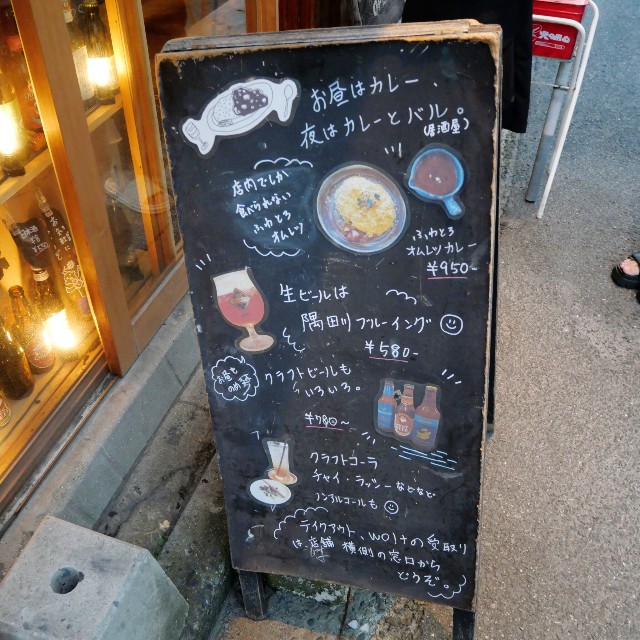 お昼はカレー、
夜はカレーとバル。
(居酒屋)
店内でしか
食べられない
ふわとろ
オムレツ
ふわとろ
オムレツカレー
¥950-
生ビールは
隅田川ブルーイング
¥580-
お昼も
のめる
クラフトビールも
いろいろ。
¥780~
クラフトコーラ
チャイ・ラッシーなどなど
ノンアルコールも
テイクアウト、woltの受取り
は店舗横側の窓口から
どうぞ。